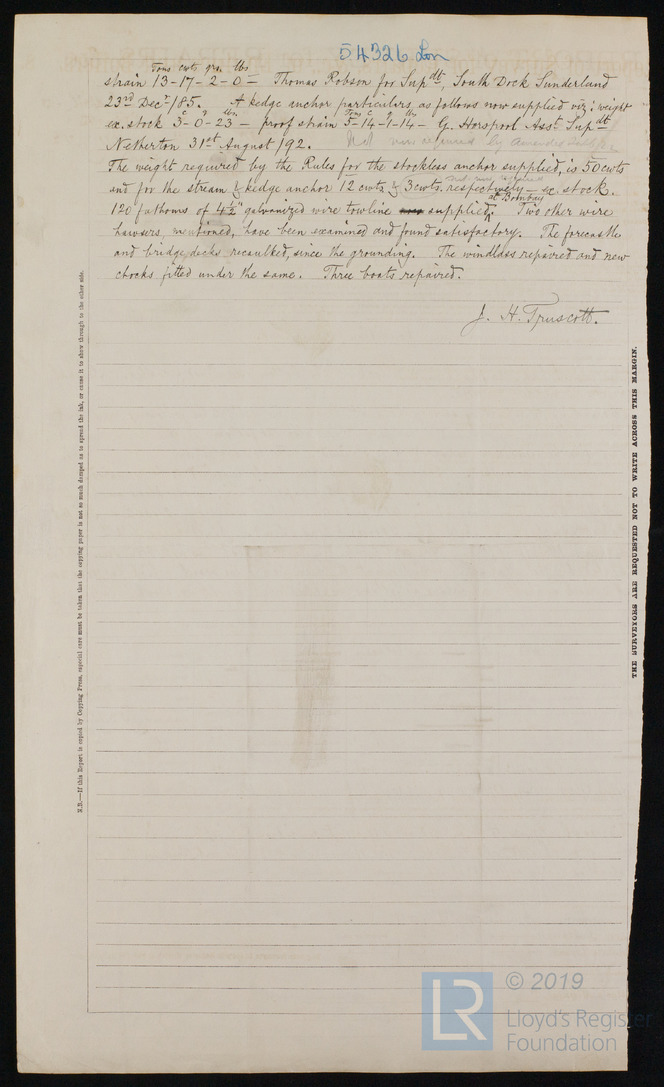 54326 Lon
Tons cwts qrs. lbs
strain 13-17-2-0 = Thomas Robson for Supdt, South Dock Sunderland
23rd Decr/85. A kedge anchor particulars as follows now supplied viz: weight
c q lbs Tons c q lbs
ex. stock 3-0-23 - proof strain 5-14-1-14 - G. Horspool Asst Supdt
Netherton 31st August/92. Not now required by amended
The weight required by the Rules for the stockless anchor supplied, is 50cwts
not now required
and for the stream & kedge anchor 12 cwts & 3cwts. respectively - ex. stock.
at Bombay
120 fathoms of 4½" galvanized wire towline supplied. Two other wire
hawsers, mentioned, have been examined and found satisfactory. The forecastle
and bridge decks recaulked, since the grounding. The windlass repaired and new
chocks fitted under the same. Three boats repaired.
J. H. Truscott.
N.B.—If this Report is copied by Copying Press, especial care must be taken that the copying paper is not so much damped as to spread the ink, or cause it to show through to the other side.
THE SURVEYORS ARE REQUESTED NOT TO WRITE ACROSS THIS MARGIN.
LR
© 2019
Lloyd's Register
Foundation